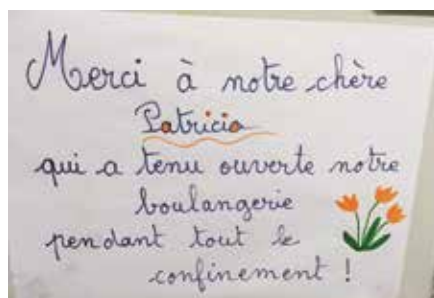 Merci à notre chère
Patricia
qui a tenu ouverte notre
boulangerie
pendant tout le
confinement !